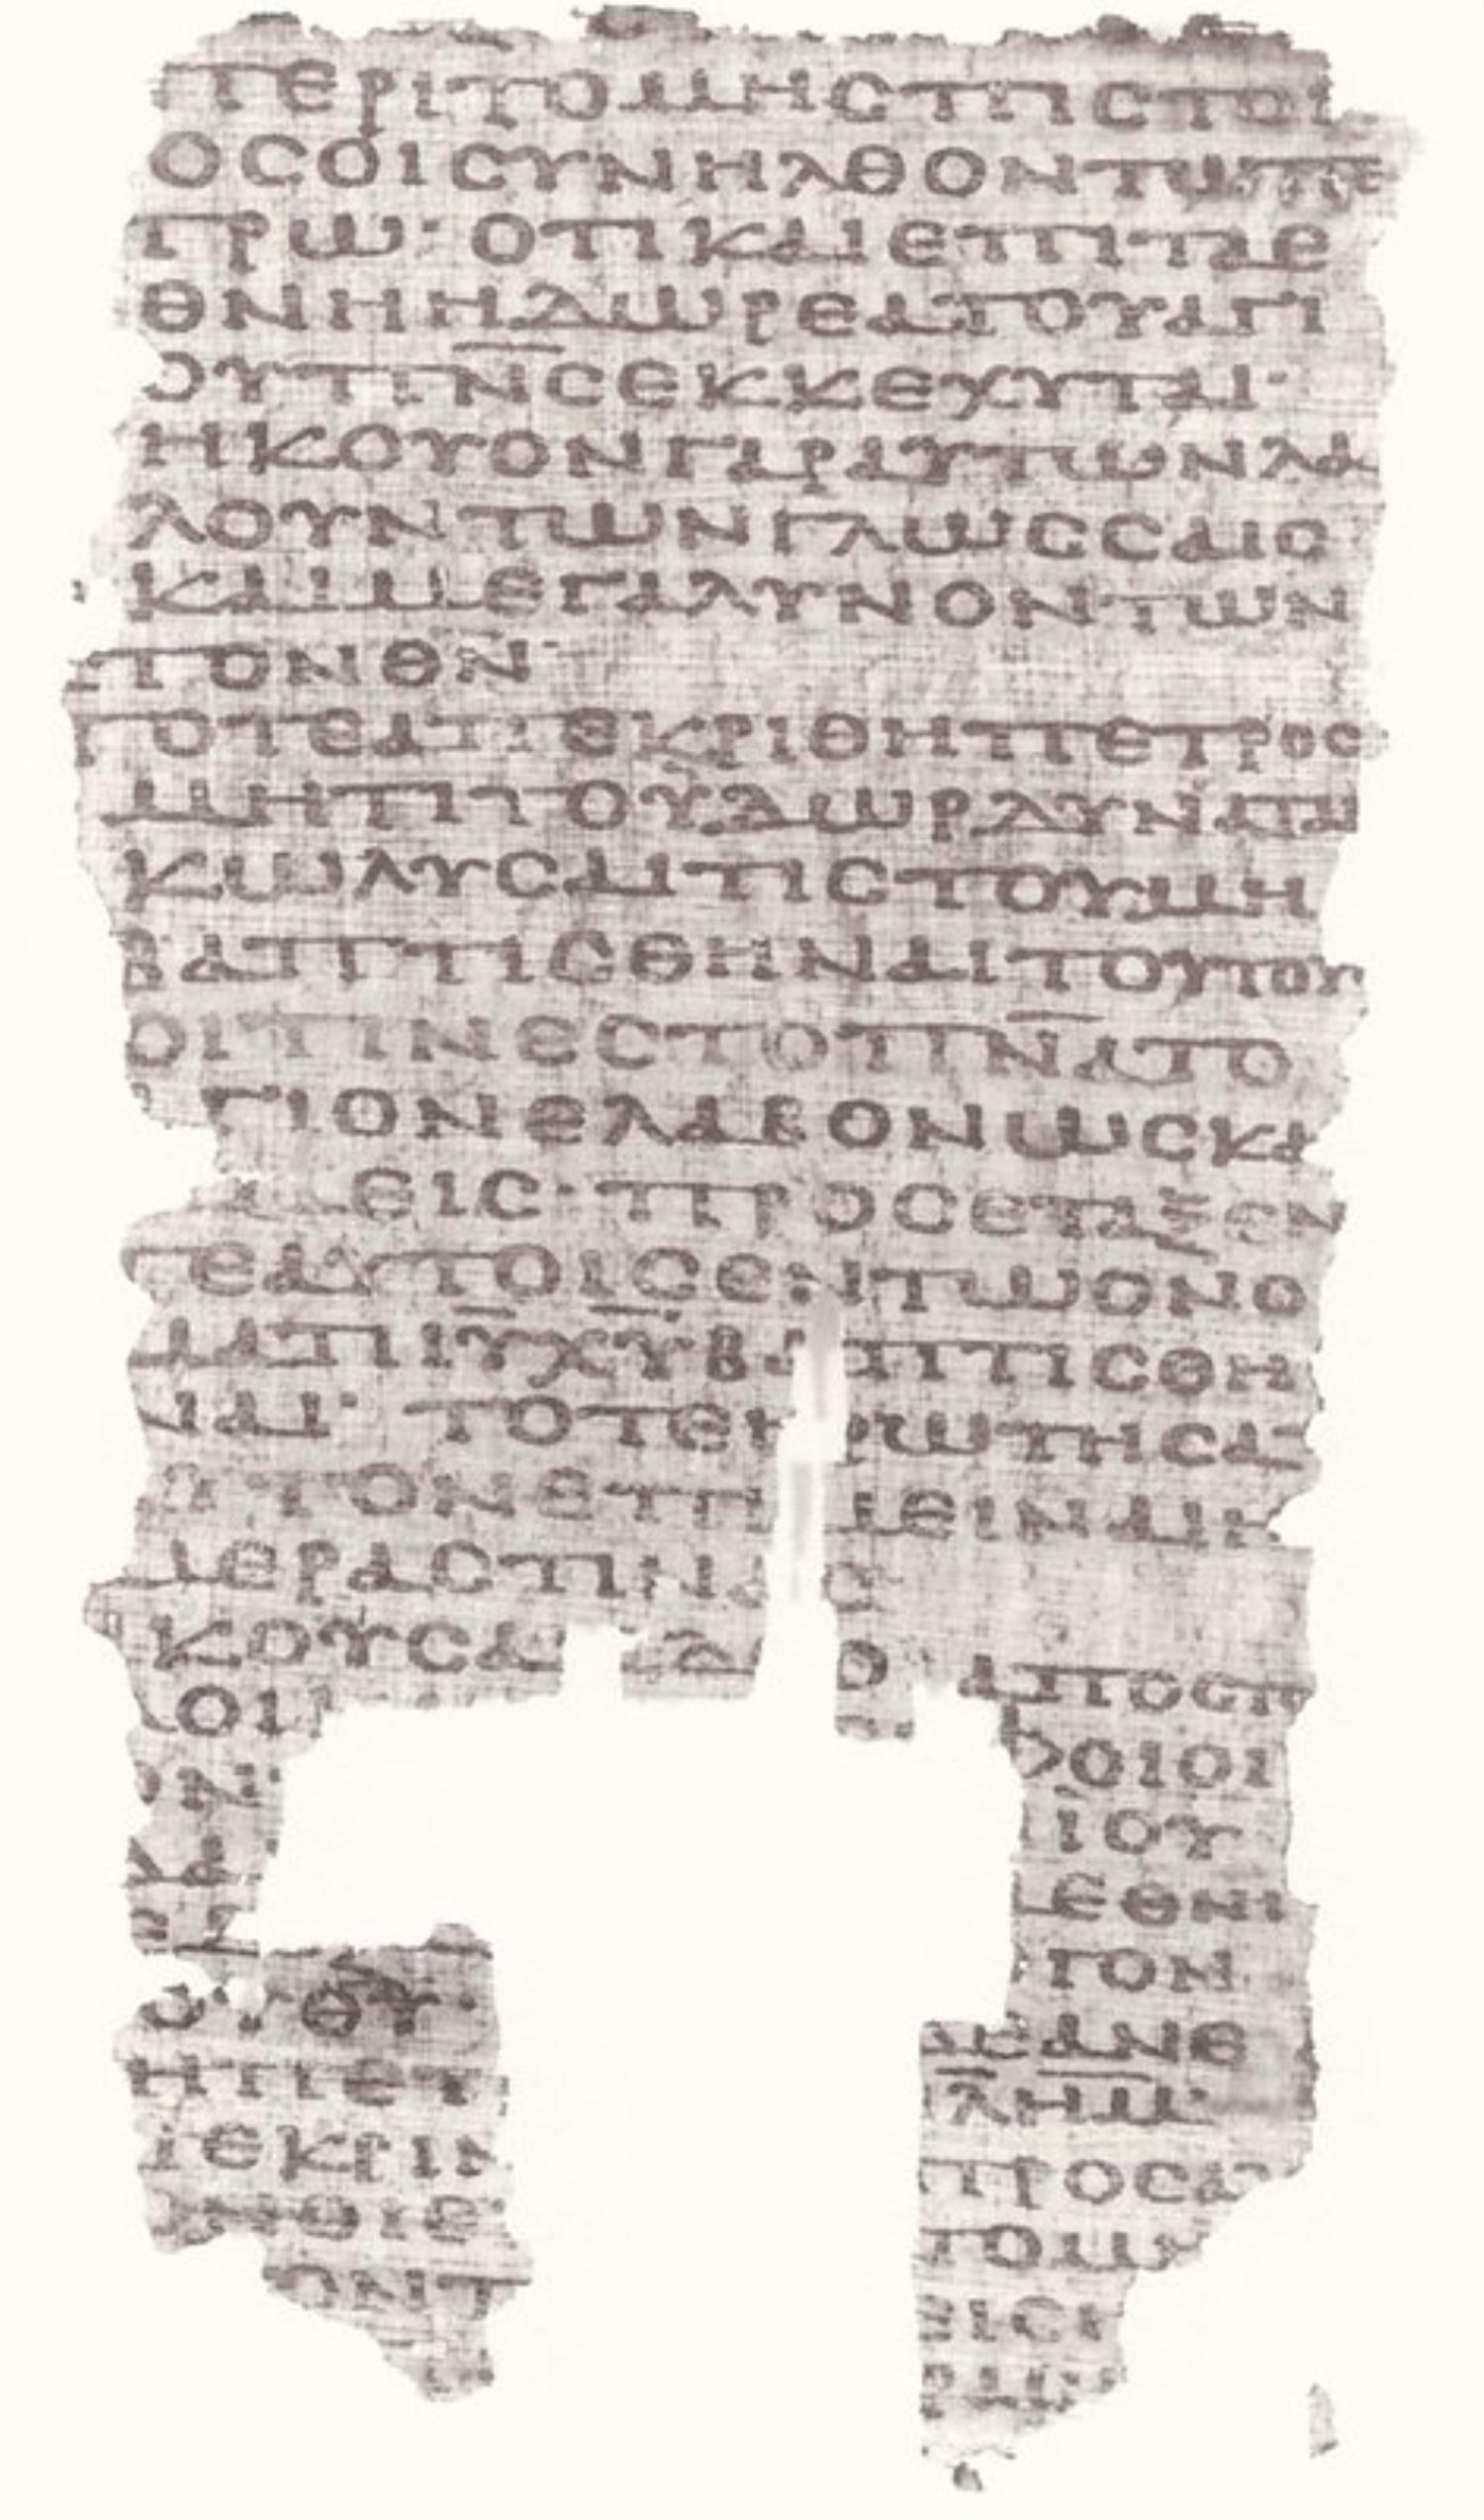 ΠΕΡΙΤΟΜΗСΠΙСΤΟΙ
ΟСΟΙСΥΝΗΛΘΟΝΤΩΠΕ
ΤΡΩ· ΟΤΙΚΑΙΕΠΙΤΑΕ
ΘΝΗΗΔΩΡΕΑΤΟΥΑΓΙ
ΟΥΠΝ̅СΕΚΚΕΧΥΤΑΙ·
ΗΚΟΥΟΝΓΑΡΑΥΤΩΝΛΑ
ΛΟΥΝΤΩΝΓΛΩССΑΙС
ΚΑΙΜΕΓΑΛΥΝΟΝΤΩΝ
ΤΟΝΘΝ·
ΤΟΤΕΑΠΕΚΡΙΘΗΠΕΤΡΟС
ΜΗΤΙΤΟΥΔΩΡΔΥΝΑΤΑΙ
ΚΩΛΥСΑΙΤΙСΤΟΥΜΗ
ΒΑΠΤΙСΘΗΝΑΙΤΟΥΤΟΥ
ΟΙΤΙΝΕСΤΟΠΝ̅ΑΤΟ
ΓΙΟΝΕΛΑΒΟΝΩСΚΑ
ΕΙС· ΠΡΟСΕΤΑΞΕΝ
ΤΕΑΥΤΟΙСΕΝΤΩΟΝΟ
ΜΑΤΙΙΥ̅ΧΥ̅ΒΑΠΤΙСΘΗ
ΝΑΙ· ΤΟΤΕΗΡΩΤΗСΑ
ΥΤΟΝΕΠΙ ΜΕΙΝΑΙΗ
ΜΕΡΑСΤΙΝΑС
ΚΟΥСΑ Δ Ο ΑΠΟСΤ
ΛΟΙ
ΟΝ ΦΟΙΟΙ
ΥΔΑ ΙΟΥ
ΕΘΝ
ΟΥΘΥ· ΓΟΝ
ΑΝΕ
ΗΠΕΤ ΛΗΜ
ΙΕΚΡΙΝ ΠΡΟСΑ
ΤΟΜ
ΟΝΤ ΕΙС